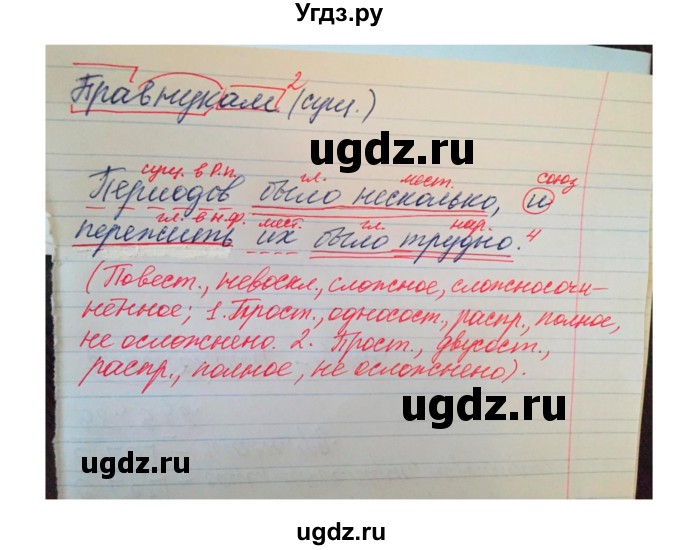 Угдз.ру
Правнукам² (сущ.)
ugdz.ru
сущ. в Р.п. гл. мест. союз
Периодов было несколько, и
гл. в н.ф. мест. гл. нар.
пережить их было трудно.⁴
(Повест., невоскл., сложное, сложносочи-
нённое; 1. Прост., односост., распр., полное,
не осложнено. 2. Прост., двусост.,
распр., полное, не осложнено).
ugdz.ru
ugdz.ru
ugdz.ru